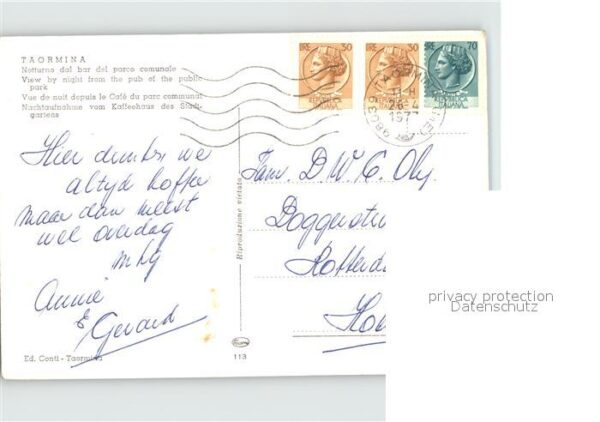 TAORMINA
Notturno dal bar del parco comunale
View by night from the pub of the public
park
Vue de nuit depuis le Café du parc communal
Nachtaufnahme vom Kaffeehaus des Stadt-
gartens
LIRE 30
LIRE 30
LIRE 70
REPUBBLICA
ITALIANA
REPUBBLICA
ITALIANA
REPUBBLICA
ITALIANA
98039 TAORMINA (ME)
1977
Hier drinken we
altijd koffie
maar dan meest
wel overdag
m hg
Annie
& Gerard
Fam. D.W.C. Oly
Doggerst
Rotterd
Ho
Riproduzione vietata
privacy protection
Datenschutz
Ed. Conti - Taormina
113